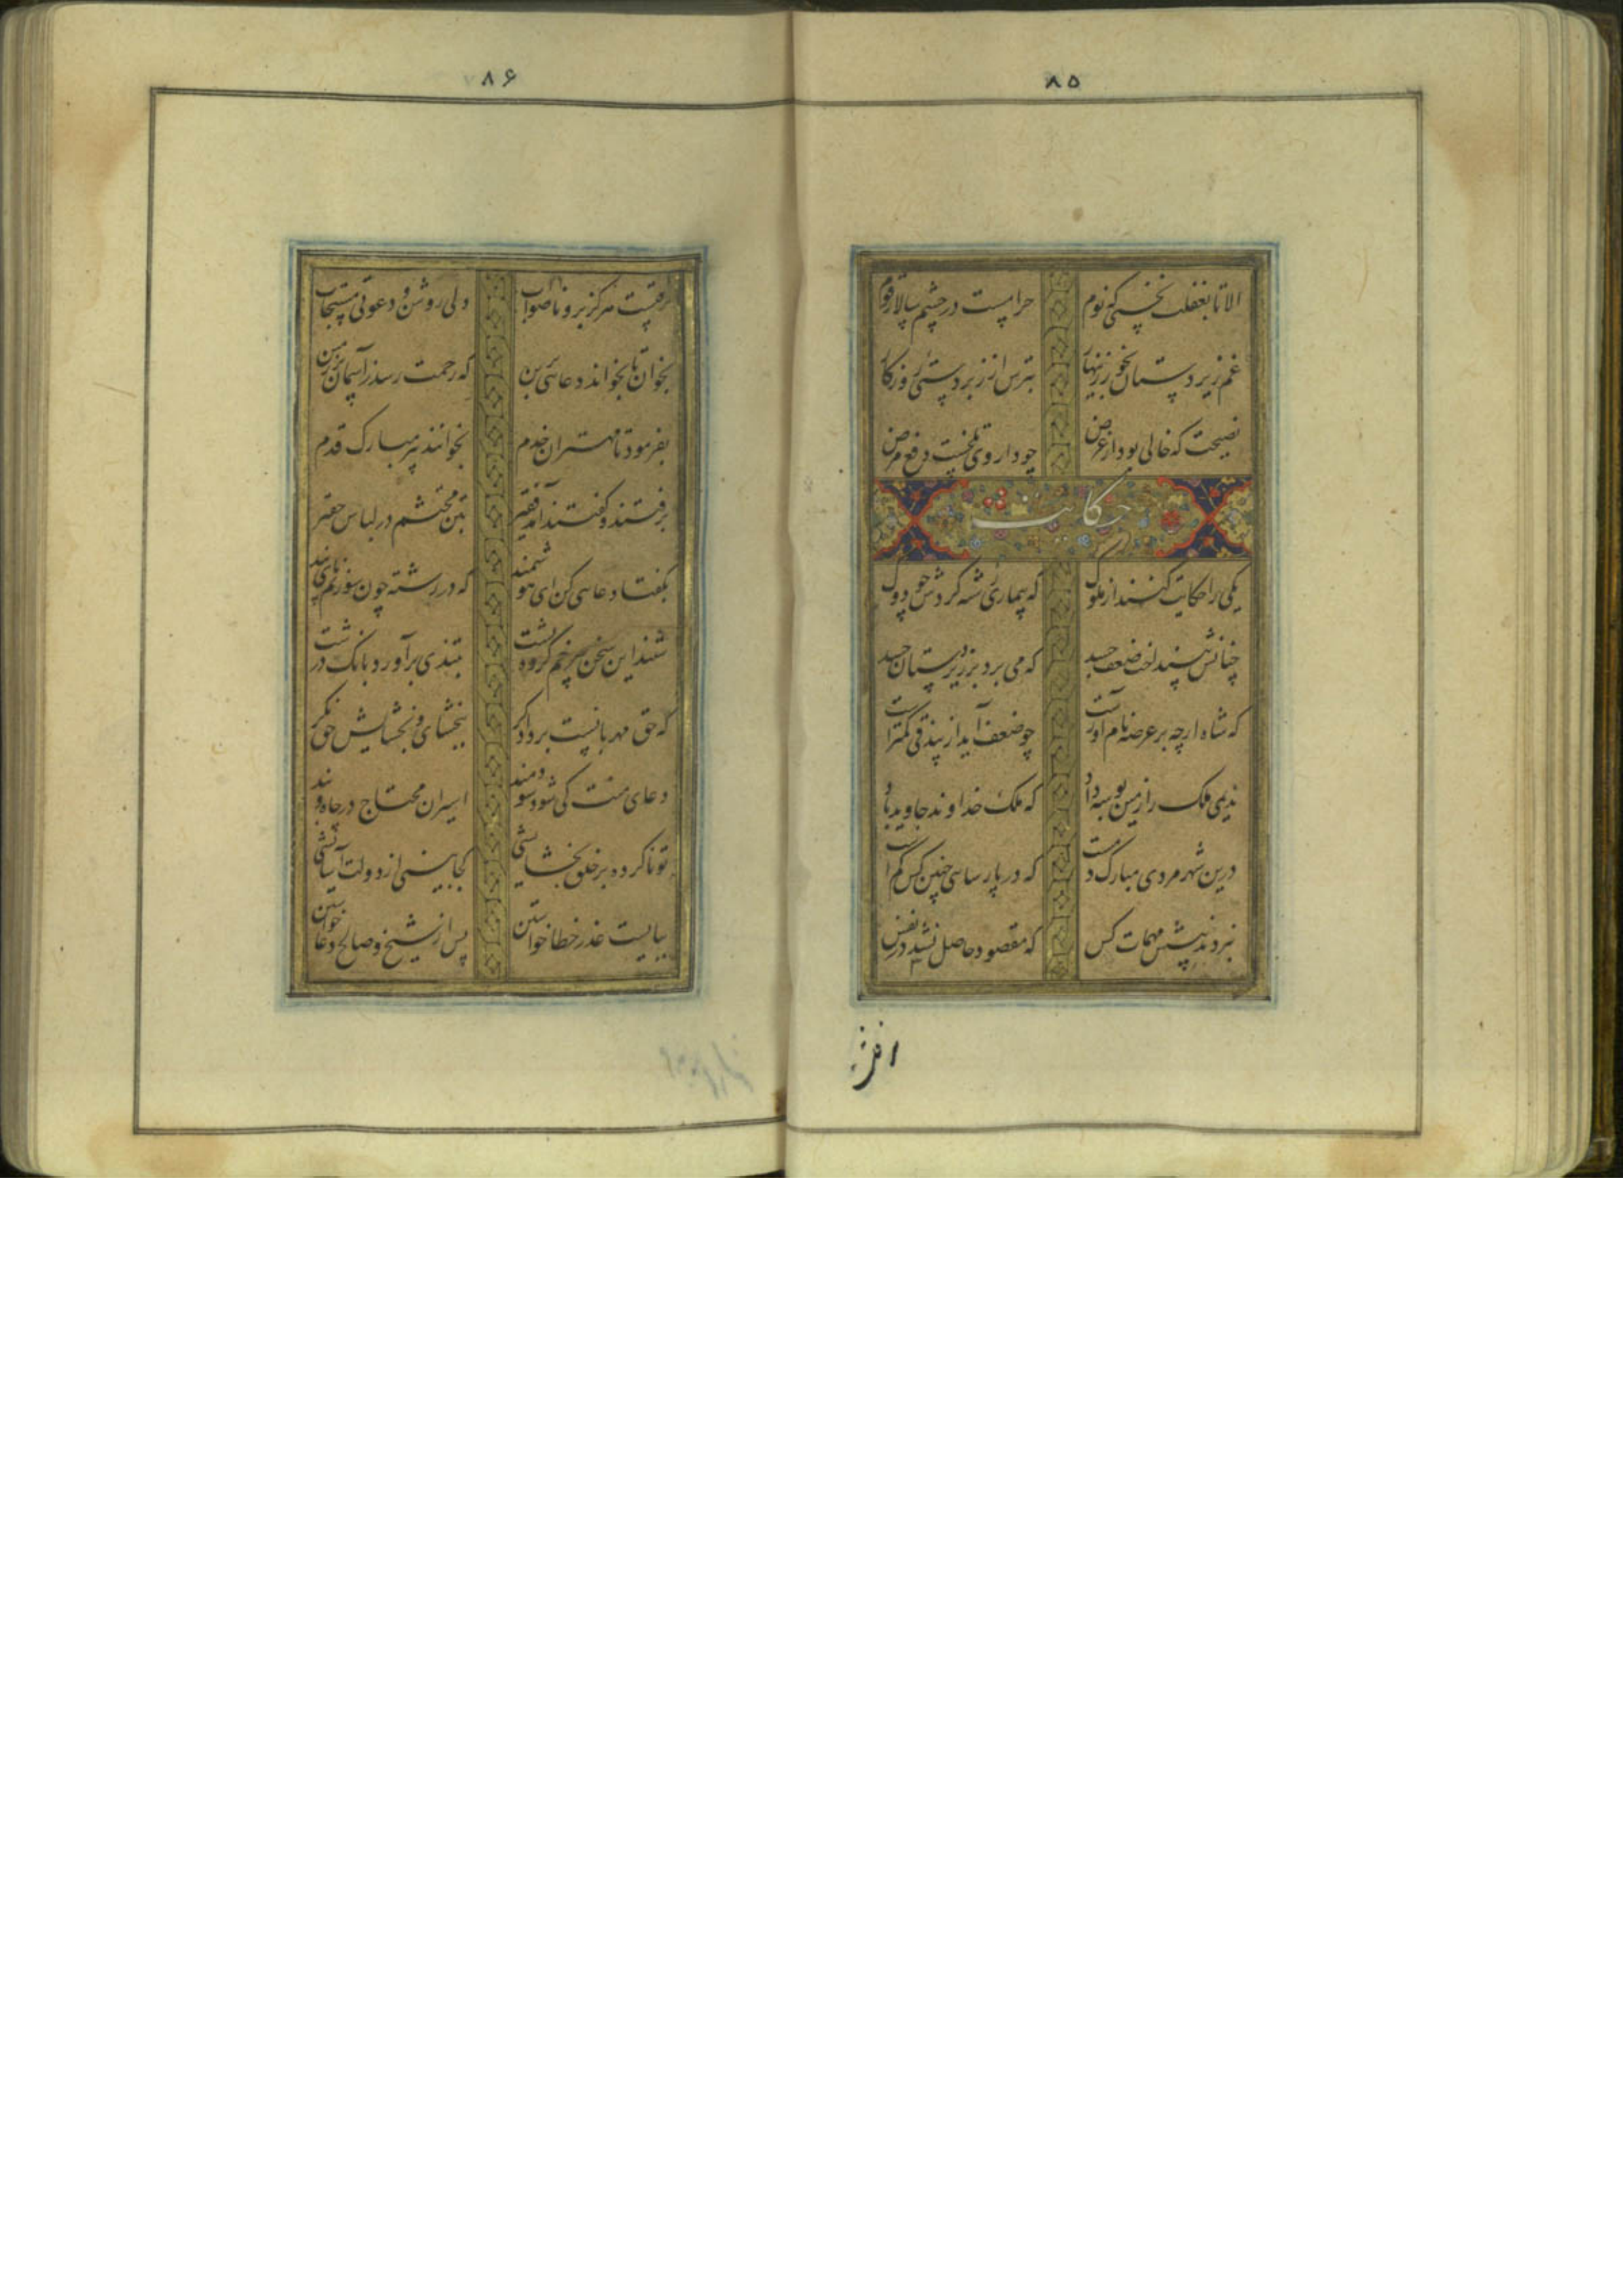 ۸۵
الا تا بغفلت نخسپی که نوم حرامست در چشم سالار قوم
غم زیردستان بخور زینهار بترس از زبردستی روزکار
نصیحت که خالی بود از غرض چو داروی تلخست دفع مرض
حکایت
یکی را حکایت کنند از ملوک که بیماری رشته کردش چو دوک
چنانش بینداخت ضعف جسد که می برد بر زیردستان حسد
که شاه ارچه بر عرصه نام آورست چو ضعف آید از بیذقی کمتر است
ندیمی ملک را زمین بوسه داد که ملک خداوند جاوید باد
درین شهر مردی مبارک دمست که در پارسایی چنین کس کم است
نبردند پیشش مهمات کس که مقصود حاصل نشد در نفس
۸۶
نرفتست هرکز برو ناصواب دلی روشن و دعوتی مستجاب
بخوان تا بخواند دعائی برین که رحمت رسد ز آسمان بر زمین
بفرمود تا مهتران خدم بخوانند پیر مبارک قدم
برفتند و کفتند آمد فقیر تنی محتشم در لباس حقیر
بکفتا دعایی کن ای هوشمند که در رشته چون سوزنم پای بند
شنید این سخن پیر خم کرده پشت بتندی برآورد بانک درشت
که حق مهربانست بر دادکر ببخشای و بخشایش حق نکر
دعای منت کی شود سودمند اسیران محتاج در چاه و بند
تو ناکرده بر خلق بخشایشی کجا بینی از دولت آسایشی
ببایست عذر خطا خواستن پس از شیخ و صالح دعا خواستن